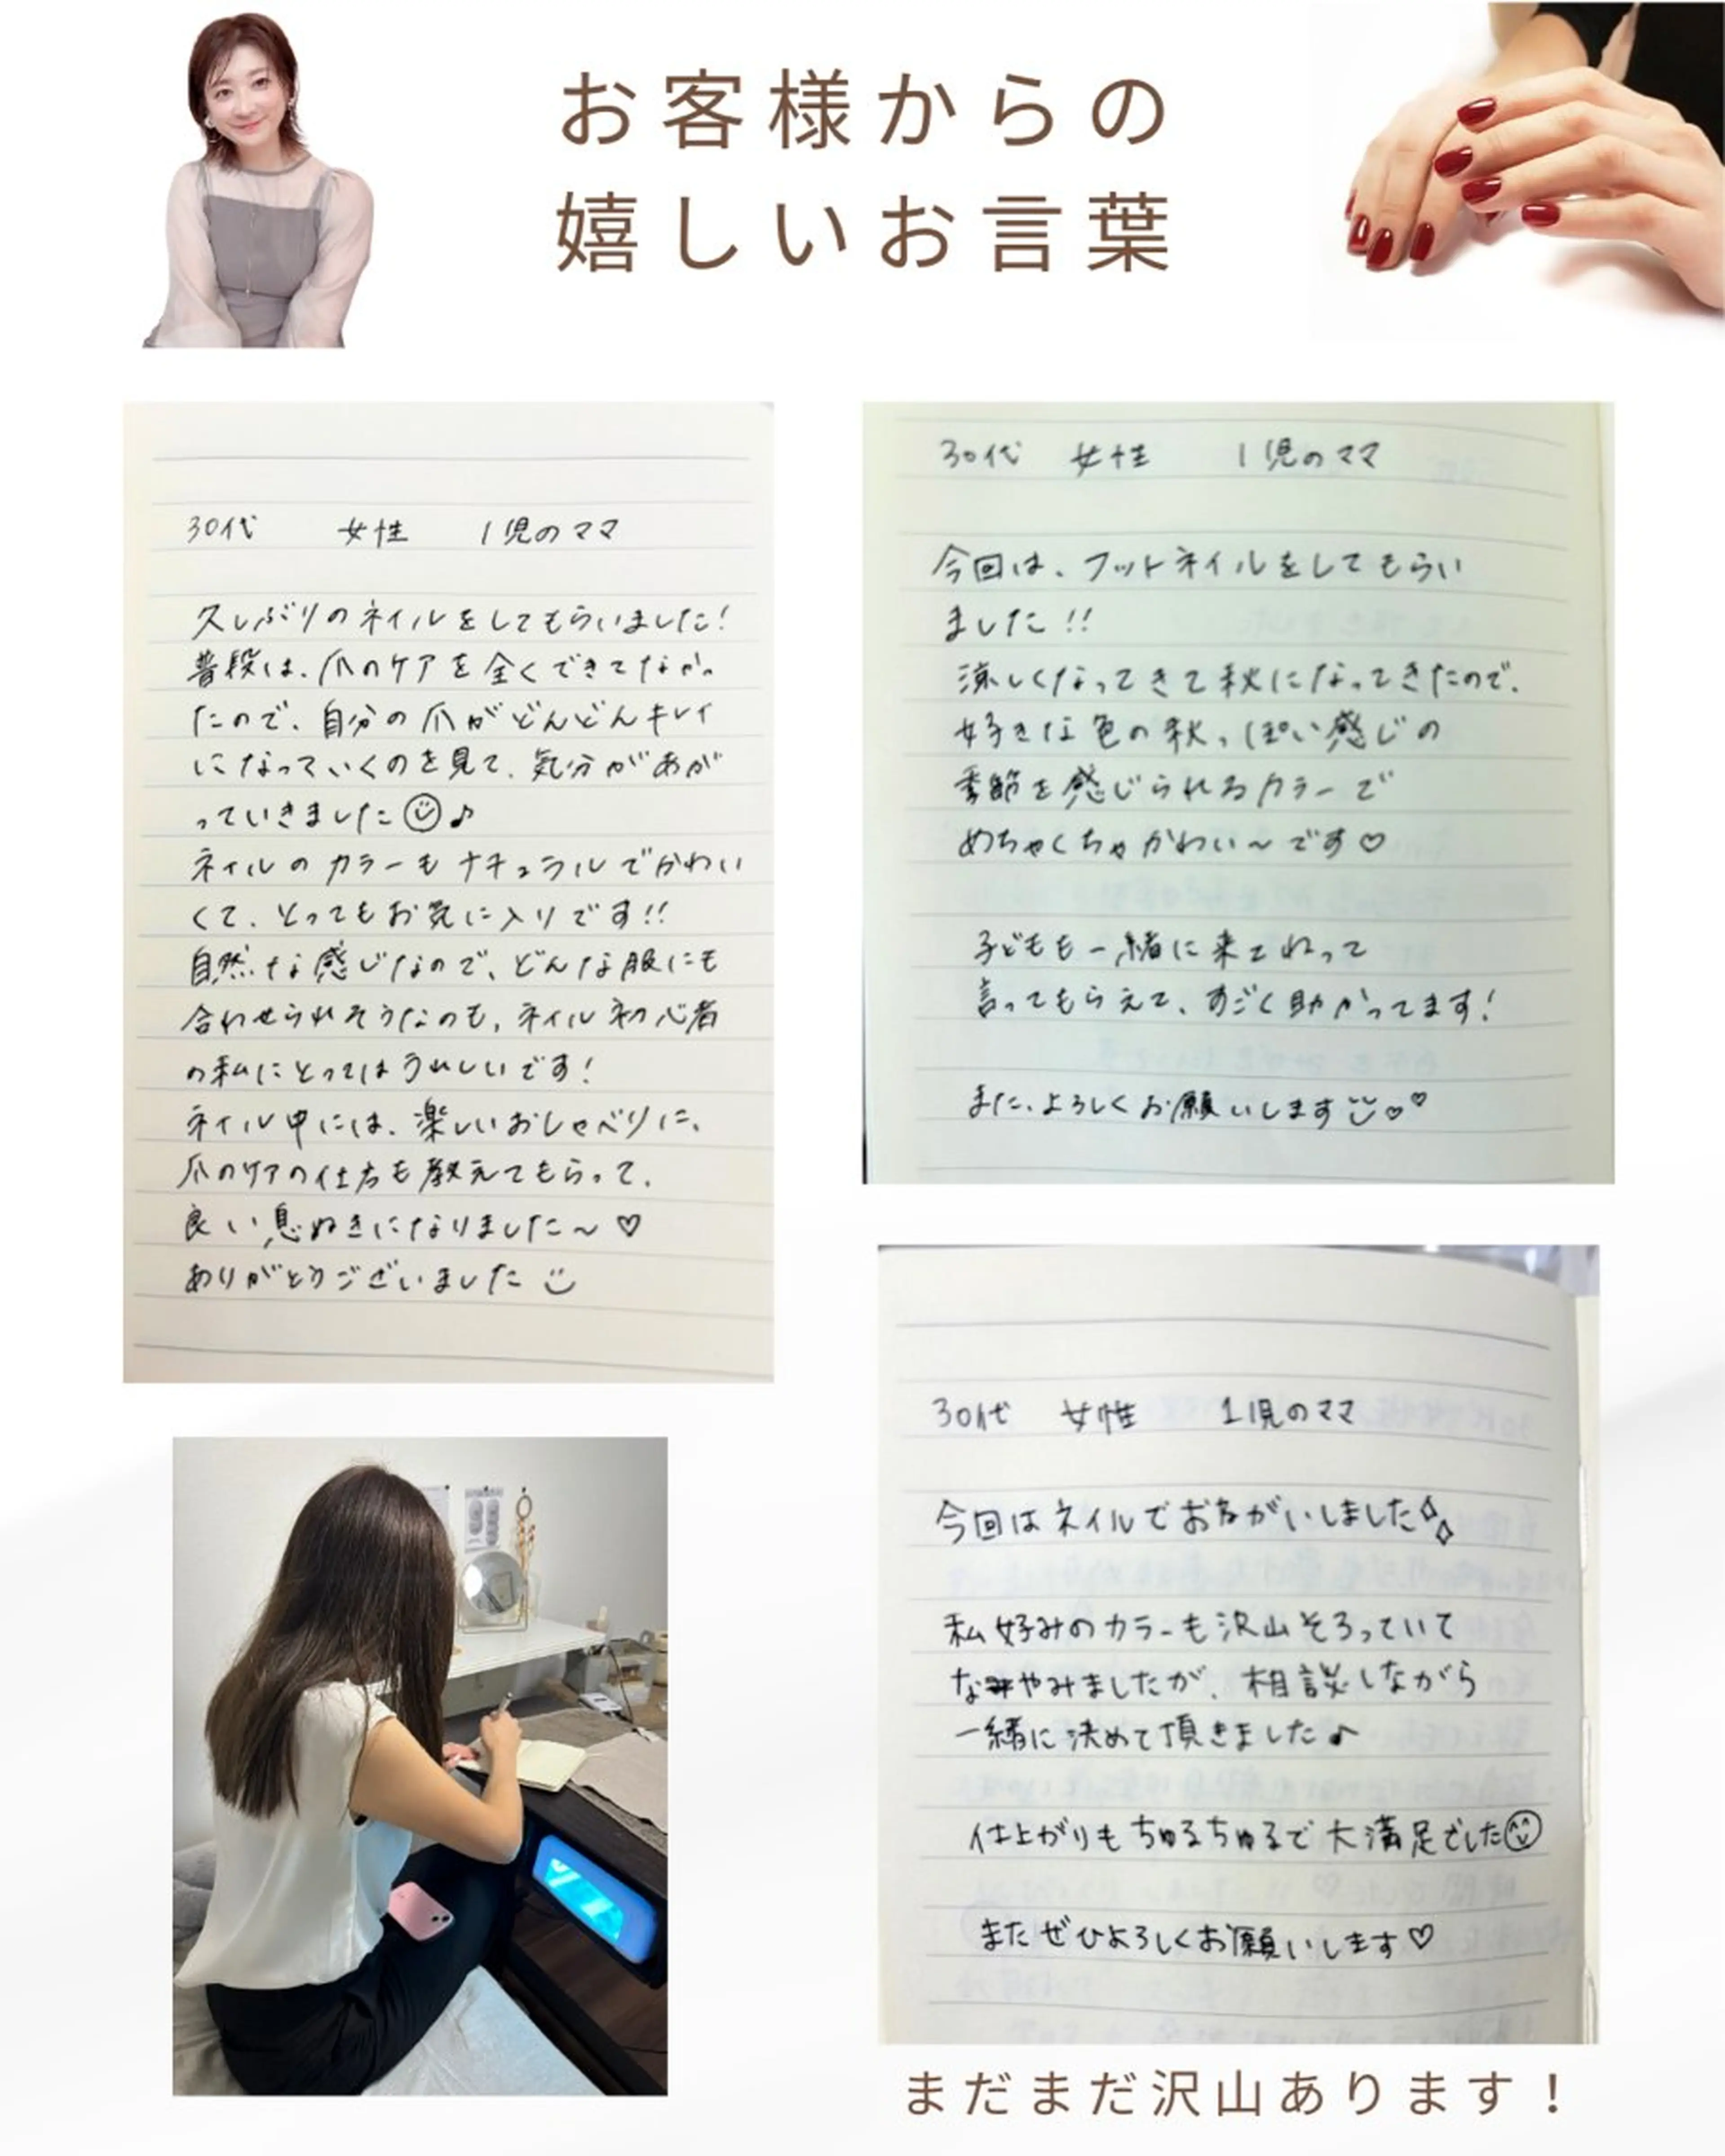 お客様からの
嬉しいお言葉
30代 女性 1児のママ
久しぶりのネイルをしてもらいました!
普段は、爪のケアを全くできてなかっ
たので、自分の爪がどんどんキレイ
になっていくのを見て、気分があが
っていきました☺♪
ネイルのカラーもナチュラルでかわい
くて、とってもお気に入りです!!
自然な感じなので、どんな服にも
合わせられそうなのも、ネイル初心者
の私にとってはうれしいです!
ネイル中には、楽しいおしゃべりに、
爪のケアの仕方も教えてもらって、
良い息ぬきになりました〜♡
ありがとうございました
30代 女性 1児のママ
今回は、フットネイルをしてもらい
ました!!
涼しくなってきて秋になってきたので、
好きな色の秋っぽい感じの
季節を感じられるカラーで
めちゃくちゃかわい〜です♡
子どもも一緒に来てねって
言ってもらえて、すごく助かってます!
また、よろしくお願いします♡♡
30代 女性 1児のママ
今回はネイルでおねがいしました
私好みのカラーも沢山そろっていて
なやみましたが、相談しながら
一緒に決めて頂きました♪
仕上がりもちゅるちゅるで大満足でした☺
またぜひよろしくお願いします♡
まだまだ沢山あります!